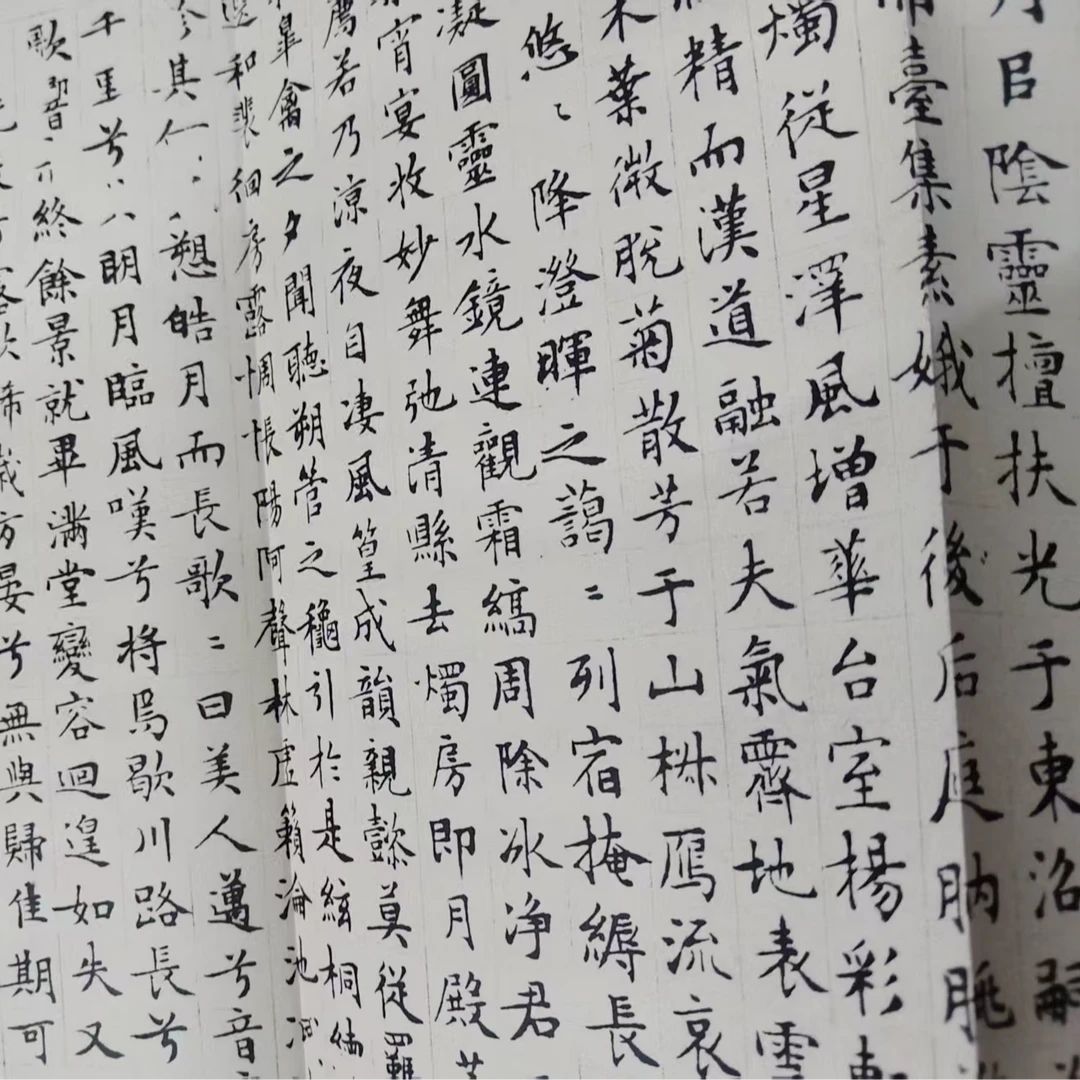 月㠯陰靈擅扶光于東沼嗣
臺集素娥于後后庭朒朓
燭從星澤風增華台室揚彩軒
精而漢道融若夫氣霽地表雲
木葉微脫菊散芳于山椒鴈流哀
悠〻降澄暉之藹〻列宿掩縟長
凝圓靈水鏡連觀霜縞周除冰净君
宵宴收妙舞弛清縣去燭房即月殿芳
薦若乃涼夜自淒風篁成韻親懿莫從羈
皋禽之夕聞聽朔管之穐引於是絃桐練
和裴徊房露惆悵陽阿聲林虛籟淪池滅
軫其何愬皓月而長歌〻曰美人邁兮音
千里兮共明月臨風嘆兮將焉歇川路長兮
歌響未終餘景就畢滿堂變容迴遑如失又
沒兮露欲晞歲方晏兮無與歸佳期可